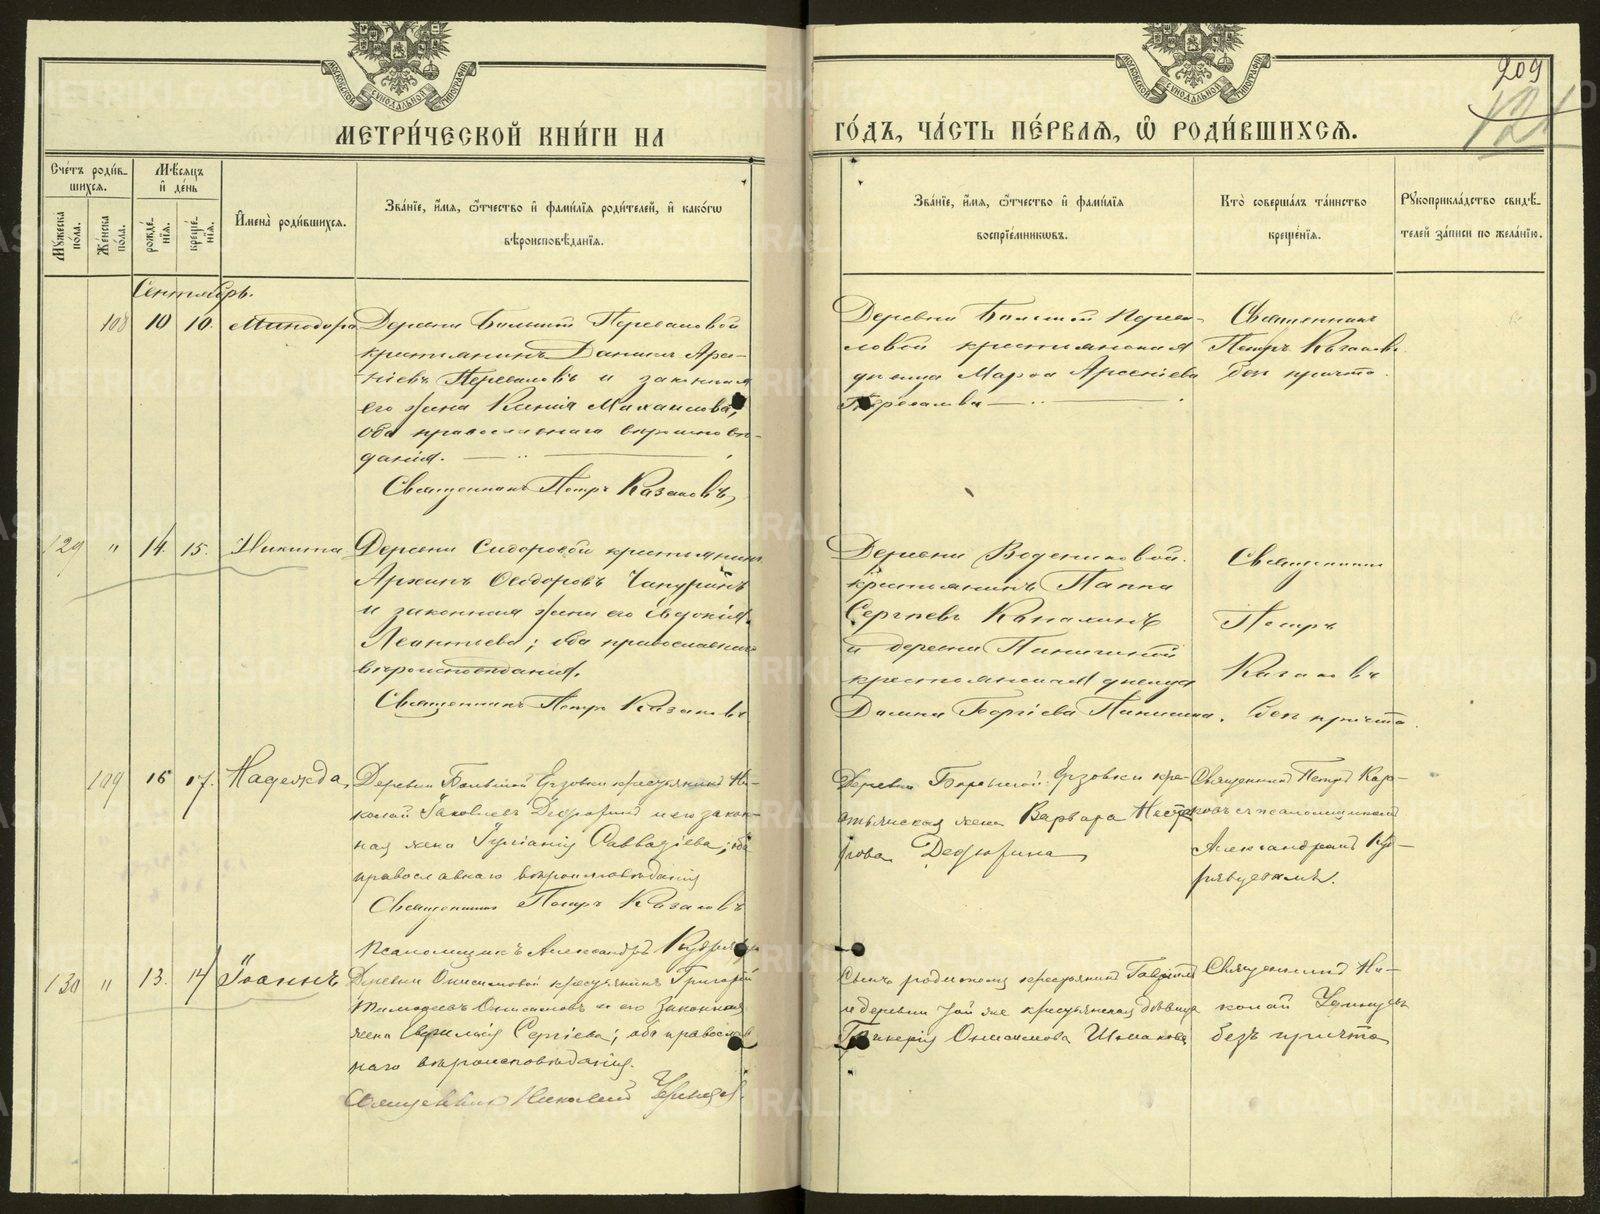 МЕТРИ́ЧЕСКОЙ КНИ́ГИ НА
ГО́ДЪ, ЧА́СТЬ ПЕ́РВАѦ, Ѡ РОДИ́ВШИХСѦ.
209
121
Сче́тъ роди́в-
шихсѧ.
Мѣ́сѧцъ
и҆ де́нь
Мꙋ́жеска
пола.
Же́нска
по́ла.
рожде́-
нїѧ.
креще́-
нїѧ.
И҆мена̀ роди́вшихсѧ.
Зва́нїе, и҆́мѧ, ѻ҆́тчество и҆ фами́лїѧ роди́телей, и҆ како́гѡ
вѣроисповѣ́данїѧ.
Зва́нїе, и҆́мѧ, ѻ҆́тчество и҆ фами́лїѧ
воспрїе́мникѡвъ.
Кто̀ соверша́лъ та́инство
креще́нїѧ.
Рꙋкоприкла́дство свидѣ́-
телей за́писи по жела́нїю.
Сентябрь.
108 10 10. Минодора
Деревни Большой Переваловой
крестьянинъ Даниилъ Арсе-
ніевъ Переваловъ и законная
его жена Ксенія Михаилова,
оба православнаго вѣроисповѣ-
данія.
Священникъ Петръ Казаковъ,
Деревни Большой Перева-
ловой крестьянская
дѣвица Марѳа Арсеніева
Перевалова
Священникъ
Петръ Казаковъ
безъ причта.
129 " 14. 15. Никита
Деревни Сидоровой крестьянинъ
Архипъ Ѳеодоровъ Чапуринъ
и законная жена его Евдокія
Леонтьева; оба православнаго
вѣроисповѣданія.
Священникъ Петръ Казаковъ
Деревни
крестьянинъ
Сергѣевъ
и деревни
крестьянская дѣвица
Священникъ
Петръ
Казаковъ
безъ причта.
109 16 17. Надежда,
Деревни Большой Ерзовки крестьянинъ Ни-
колай Яковлевъ Дедюринъ и его закон-
ная жена Іуліанія Савватіева; оба
православнаго вѣроисповѣданія
Священникъ Петръ Казаковъ
Псаломщикъ Александръ
Деревни Ерзовки кре-
стьянская жена Варвара Несте-
рова Дедюрина
Священникъ Петръ Каз-
ковъ съ псаломщикомъ
Александромъ Куд-
рявцевымъ.
130 " 13. 14 Іоаннъ
Деревни Онисимовой крестьянинъ Григорій
Тимоѳеевъ Онисимовъ и его законная
жена Сергіева; оба православ-
наго вѣроисповѣданія.
Священникъ Николай
крестьянинъ Гавріилъ
и деревни той же крестьянская дѣвица
Гликерія Онисимова
Священникъ Ни-
колай
безъ причта
METRIKI.GASO-URAL.RU